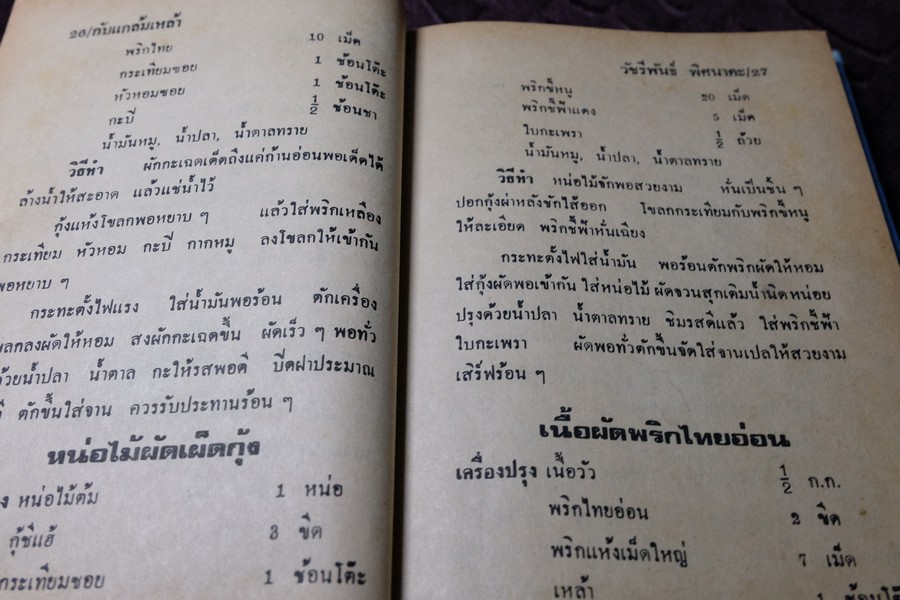 26/กับแกล้มเหล้า
พริกไทย 10 เม็ด
กระเทียมซอย 1 ช้อนโต๊ะ
หัวหอมซอย 1 ช้อนโต๊ะ
กะปิ ½ ช้อนชา
น้ำมันหมู, น้ำปลา, น้ำตาลทราย
วิธีทำ ผักกะเฉดเด็ดถึงแค่ก้านอ่อนพอเด็ดได้
ล้างน้ำให้สะอาด แล้วแช่น้ำไว้
กุ้งแห้งโขลกพอหยาบ ๆ แล้วใส่พริกเหลือง
กระเทียม หัวหอม กะปิ กากหมู ลงโขลกให้เข้ากัน
พอหยาบ ๆ
กระทะตั้งไฟแรง ใส่น้ำมันพอร้อน ตักเครื่อง
ลงผัดให้หอม ส่งผักกะเฉดขึ้น ผัดเร็ว ๆ พอทั่ว
ด้วยน้ำปลา น้ำตาล กะให้รสพอดี ปิดฝาประมาณ
ตักขึ้นใส่จาน ควรรับประทานร้อน ๆ
หน่อไม้ผัดเผ็ดกุ้ง
หน่อไม้ต้ม 1 หน่อ
กุ้ชีแฮ้ 3 ขีด
กระเทียมซอย 1 ช้อนโต๊ะ
วัชรีพันธ์ พิศนาคะ/27
พริกขี้หนู 20 เม็ด
พริกชี้ฟ้าแดง 5 เม็ด
ใบกะเพรา ½ ถ้วย
น้ำมันหมู, น้ำปลา, น้ำตาลทราย
วิธีทำ หน่อไม้ชักพอสวยงาม หั่นเป็นชิ้น ๆ
ปอกกุ้งผ่าหลังชักไส้ออก โขลกกระเทียมกับพริกขี้หนู
ให้ละเอียด พริกชี้ฟ้าหั่นเฉียง
กระทะตั้งไฟใส่น้ำมัน พอร้อนตักพริกผัดให้หอม
ใส่กุ้งผัดพอเข้ากัน ใส่หน่อไม้ ผัดจวนสุกเติมน้ำนิดหน่อย
ปรุงด้วยน้ำปลา น้ำตาลทราย ชิมรสดีแล้ว ใส่พริกชี้ฟ้า
ใบกะเพรา ผัดพอทั่วตักขึ้นจัดใส่จานเปลให้สวยงาม
เสิร์ฟร้อน ๆ
เนื้อผัดพริกไทยอ่อน
เครื่องปรุง เนื้อวัว ½ ก.ก.
พริกไทยอ่อน 2 ขีด
พริกแห้งเม็ดใหญ่ 7 เม็ด
เหล้า 1 ช้อนโต๊ะ